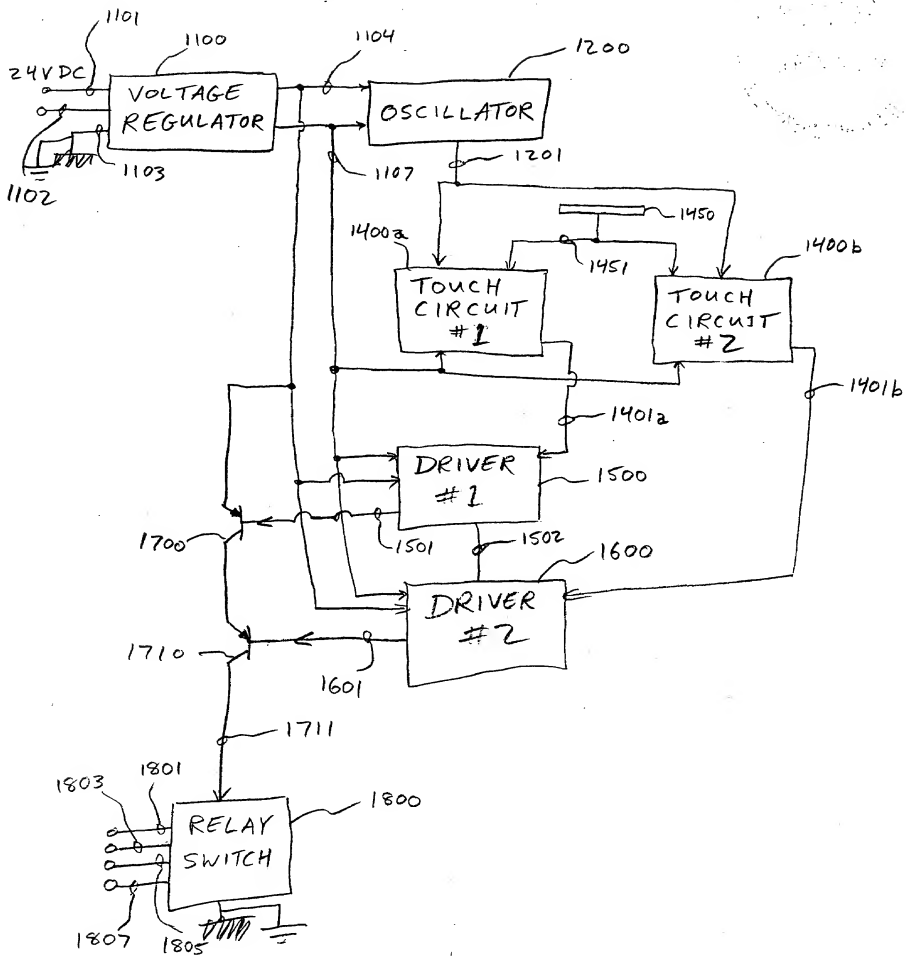 1101
1100
1104
1200
24V DC
VOLTAGE
REGULATOR
OSCILLATOR
1103
1102
1107
1201
1450
1400a
1451
1400b
TOUCH
CIRCUIT
#1
TOUCH
CIRCUIT
#2
1401a
1401b
DRIVER
#1
1500
1700
1501
1502
1600
DRIVER
#2
1710
1601
1711
1803
1801
1800
RELAY
SWITCH
1807
1805